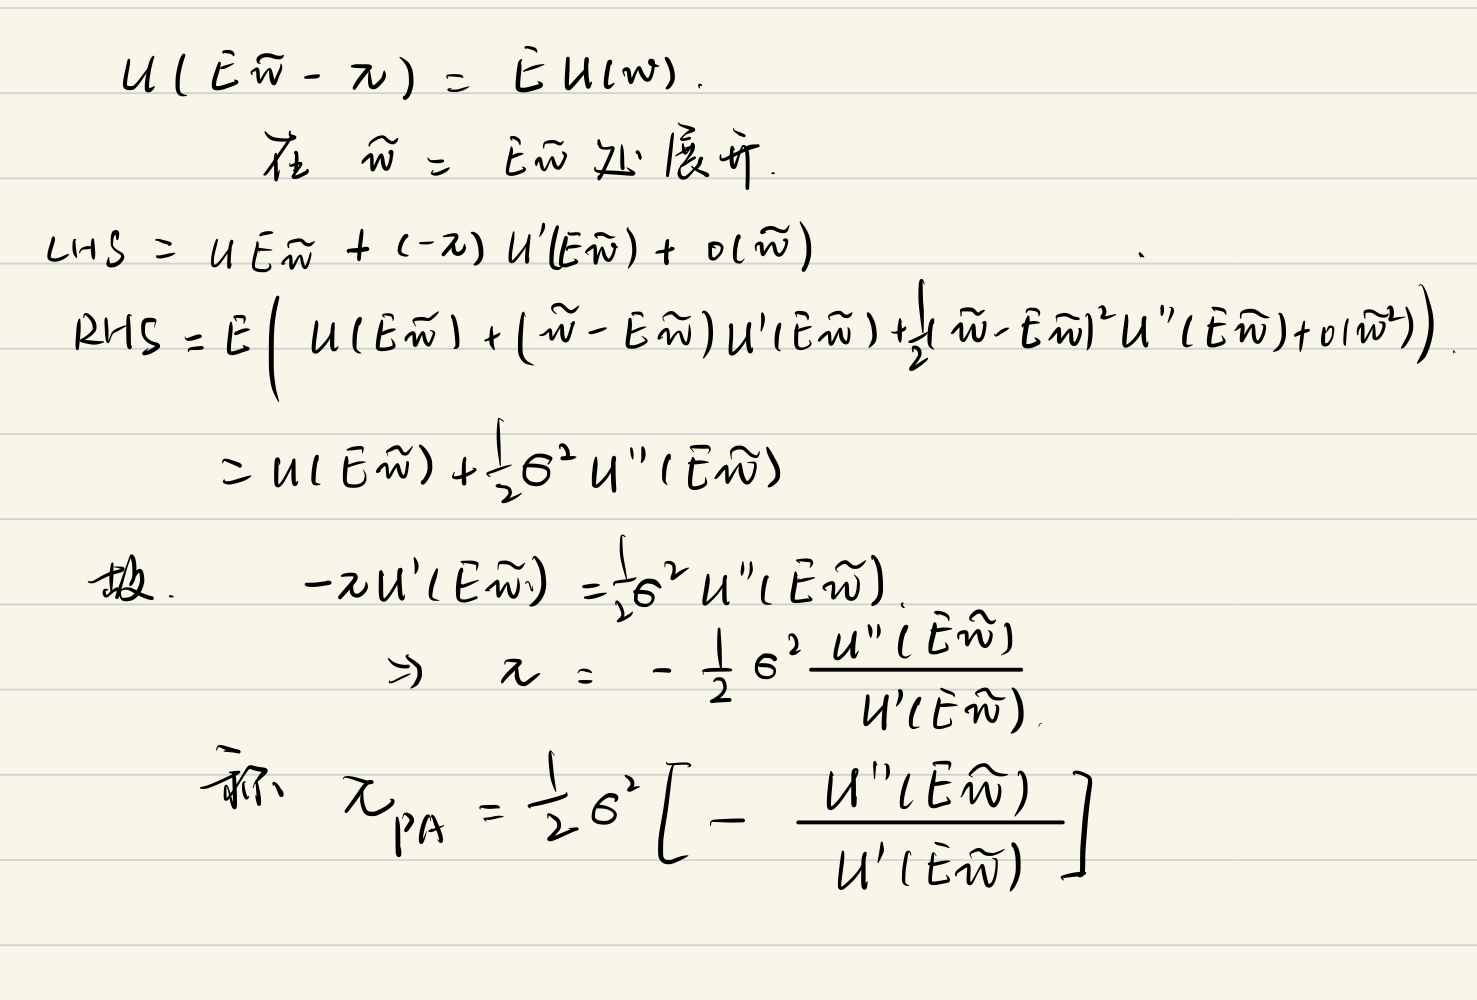 U(Ew̃ - π) = EU(w).
在 w̃ = Ew̃ 处展开.
LHS = UEw̃ + (-π)U'(Ew̃) + o(w̃)
RHS = E(U(Ew̃) + (w̃ - Ew̃)U'(Ew̃) + 1/2(w̃ - Ew̃)²U''(Ew̃) + o(w̃²)).
= U(Ew̃) + 1/2 σ² U''(Ew̃)
故. -πU'(Ew̃) = 1/2 σ² U''(Ew̃).
⇒ π = - 1/2 σ² U''(Ew̃)/U'(Ew̃).
称 π_PA = 1/2 σ² [- U''(Ew̃)/U'(Ew̃)]